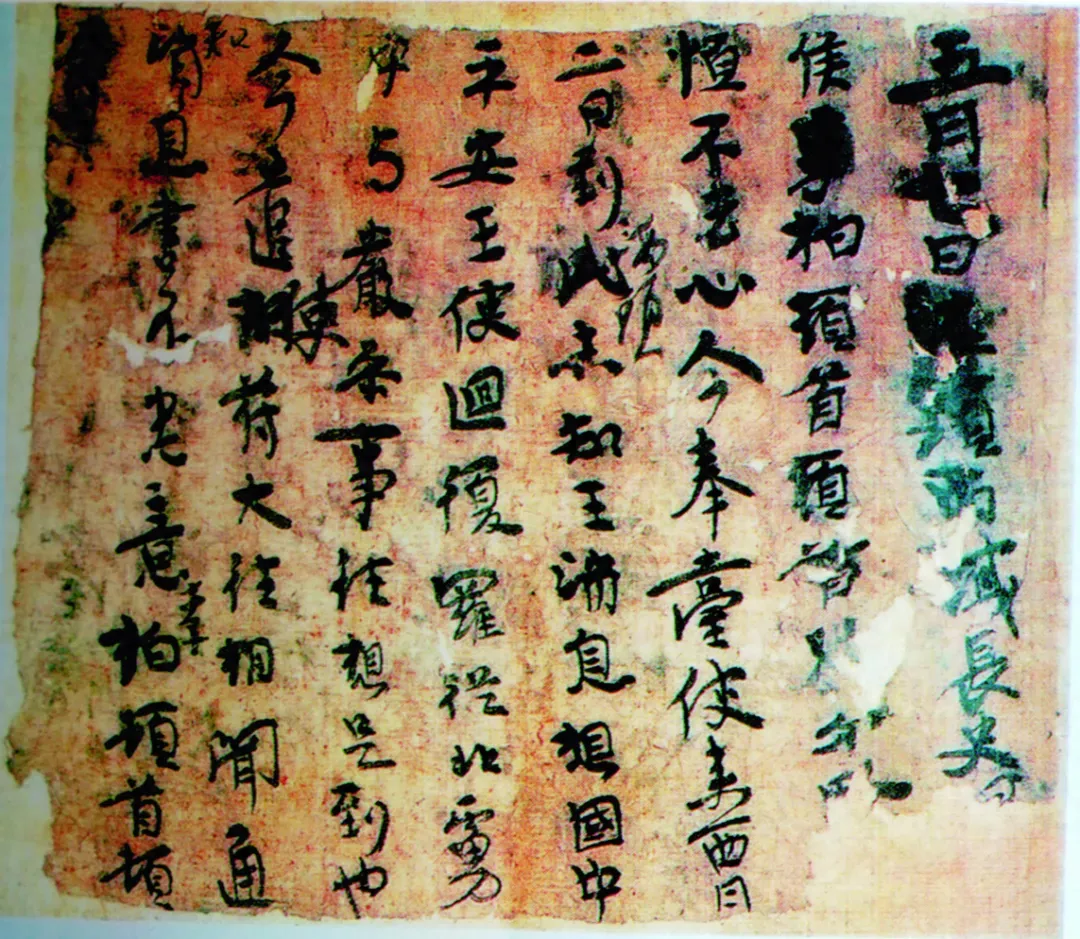 五月七日西域長史
侯柏頓首頓首
恒不去心今奉臺使來西月
二日到此海頭未知王消息想國中
平安王使迴復羅從北虜
中与嚴參事往想是到也
今遣使苻大往相聞通
知消息書不悉意李柏頓首頓